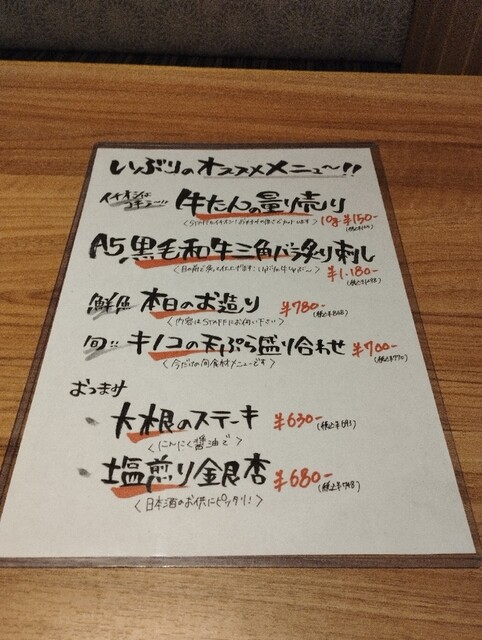 いぶりのオススメメニュ〜!!
イチオシはコチラ〜!! 牛たんの量り売り 10g ¥150-
A5,黒毛和牛三角バラ炙り刺し
¥1.180-
鮮魚 本日のお造り ¥780-
<内容はSTAFFにお伺い下さい>
旬!! キノコの天ぷら盛り合わせ ¥700-
(税込¥770)
<今だけの旬食材メニューです>
おつまみ
大根のステーキ ¥630- (税込¥693)
<にんにく醤油で>
塩煎り銀杏 ¥680- (税込¥748)
<日本酒のお供にピッタリ!>